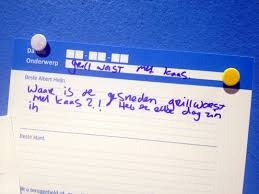 Da
Onderwerp grill worst met kaas.
Beste Albert Heijn,
Waar is de gesneden grillworst
met kaas?! Heb er elke dag zin
in
Beste klant,